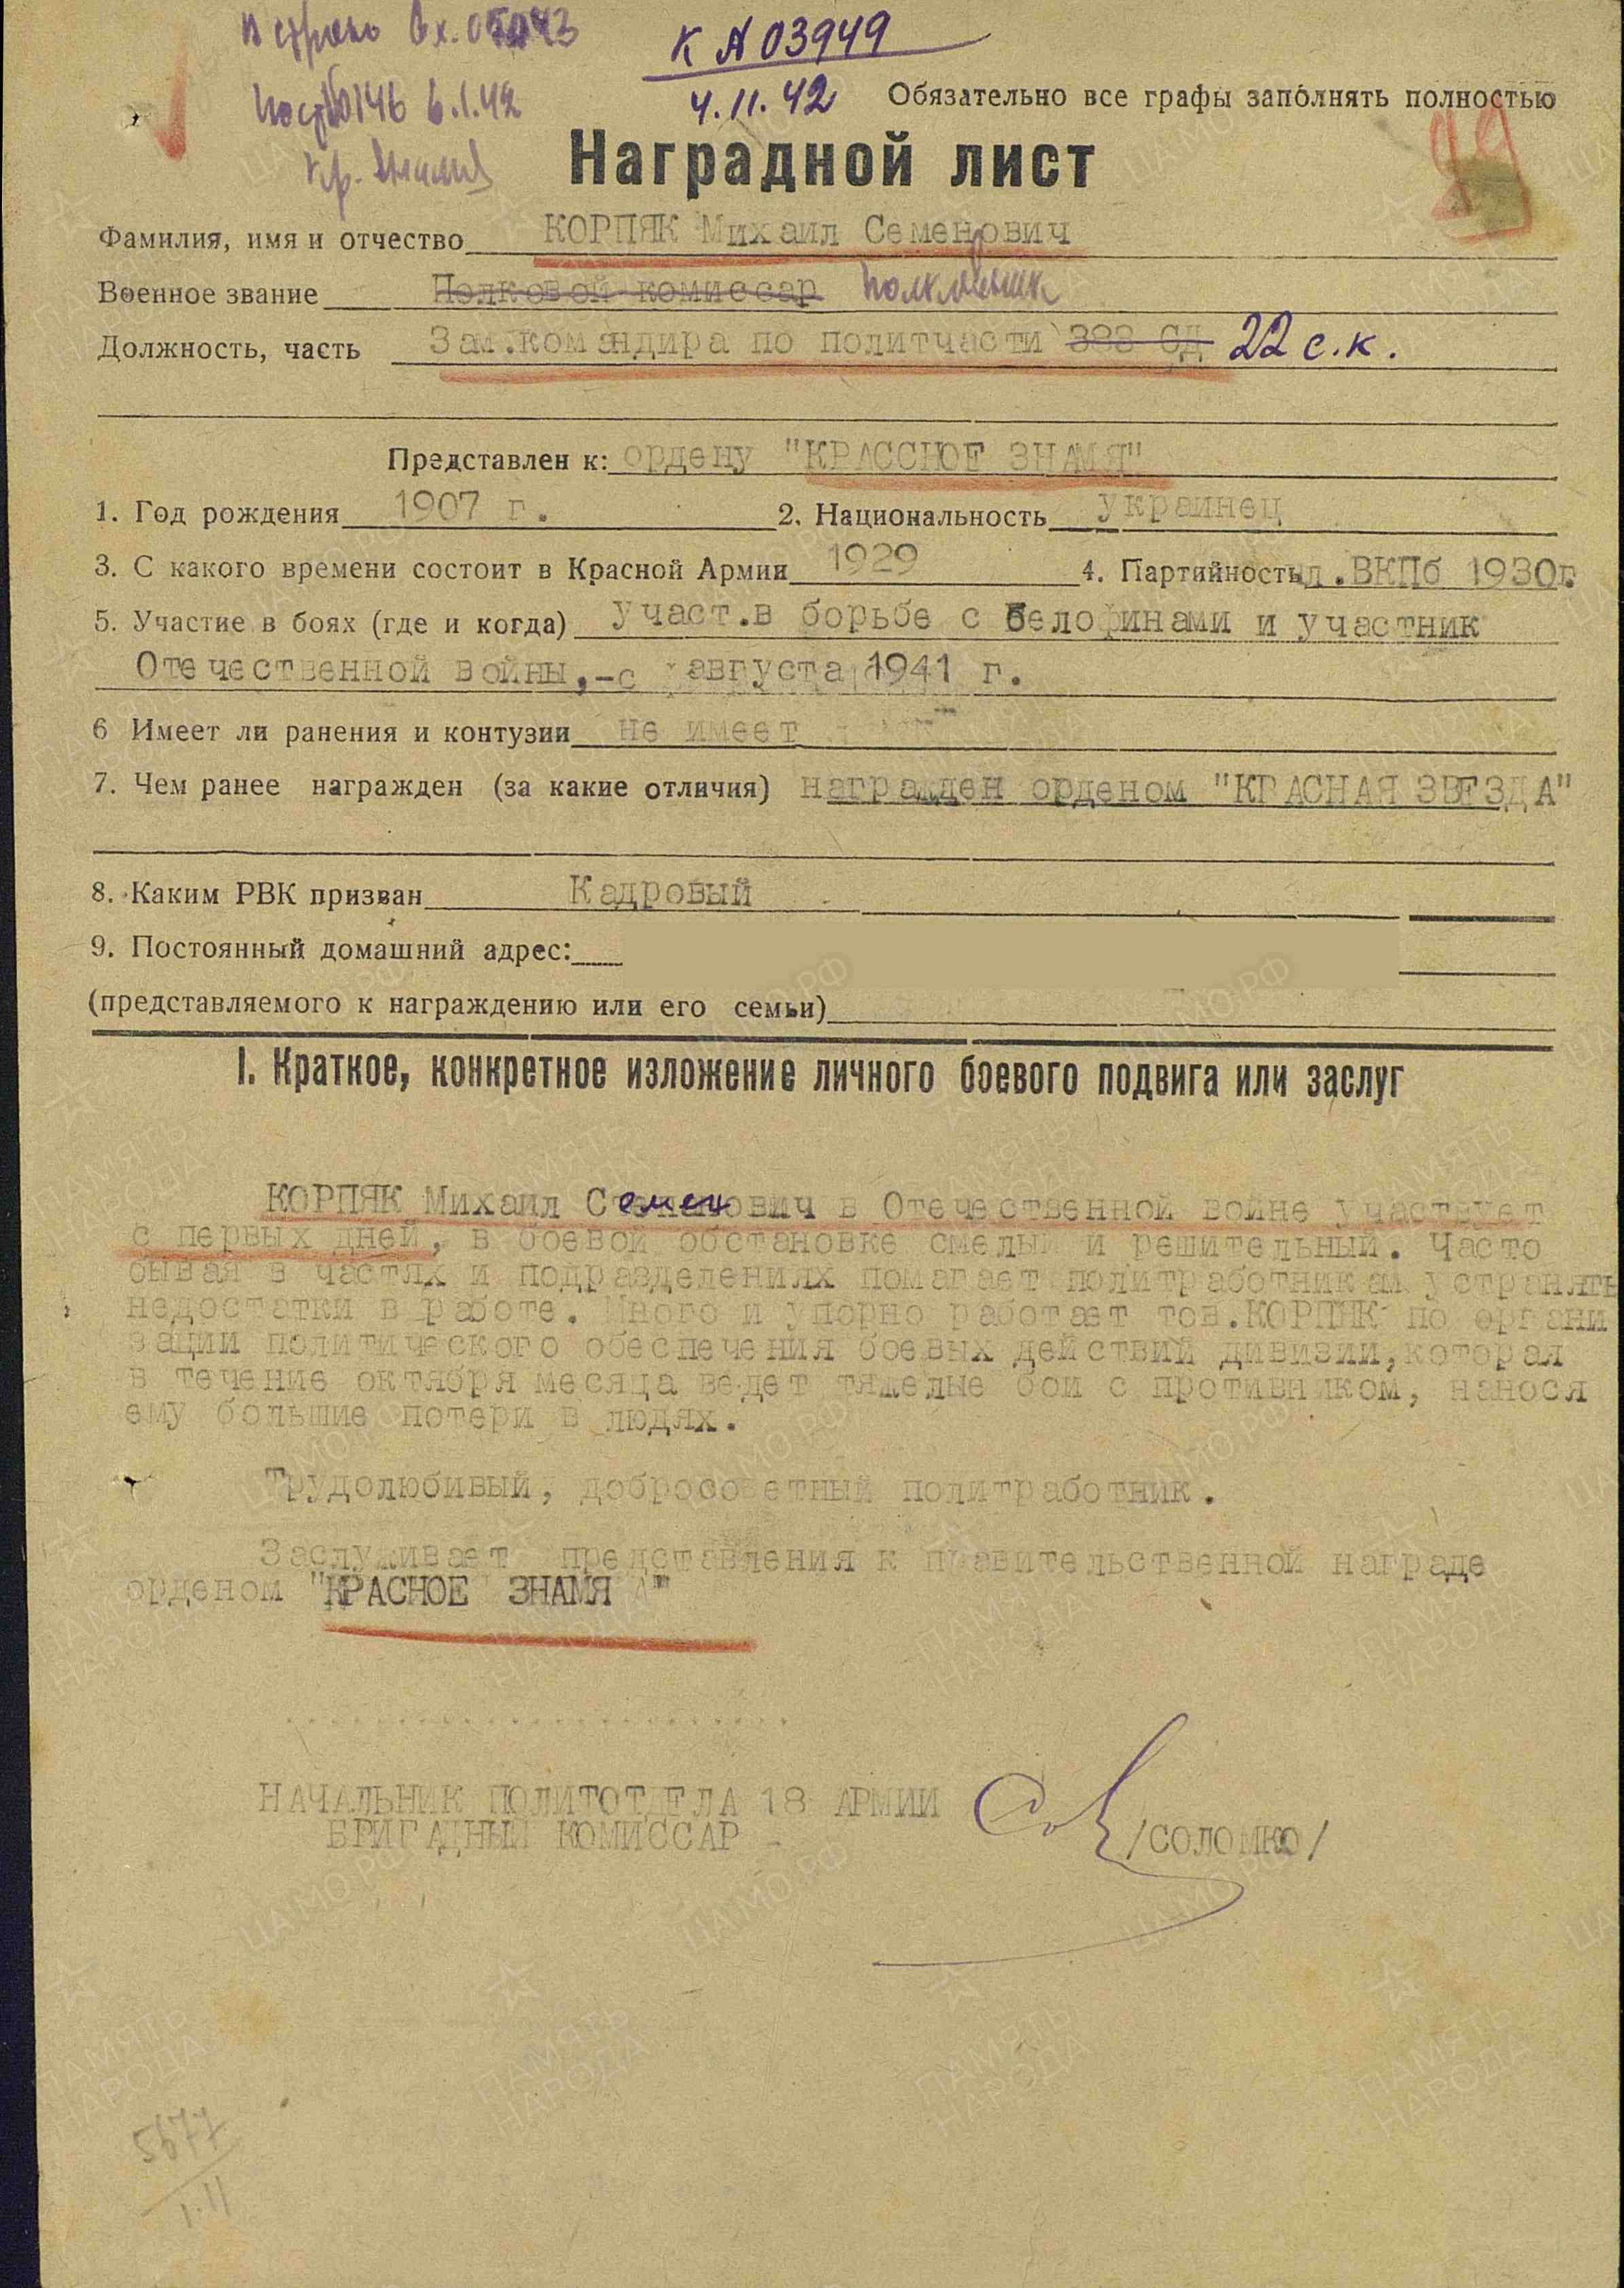 К А 03949
4.11.42
6.1.42
Обязательно все графы заполнять полностью
Наградной лист
Фамилия, имя и отчество КОРПЯК Михаил Семенович
Военное звание Полковой комиссар
Должность, часть Зам.командира по политчасти 383 СД 22 с.к.
Представлен к: ордену "КРАССНОЕ ЗНАМЯ"
1. Год рождения 1907 г. 2. Национальность украинец
3. С какого времени состоит в Красной Армии 1929 4. Партийность чл.ВКПб 1930г.
5. Участие в боях (где и когда) Участ.в борьбе с Белофинами и участник
Отечественной войны,-с августа 1941 г.
6 Имеет ли ранения и контузии не имеет
7. Чем ранее награжден (за какие отличия) награжден орденом "КРАСНАЯ ЗВЕЗДА"
8. Каким РВК призван Кадровый
9. Постоянный домашний адрес:
(представляемого к награждению или его семьи)
I. Краткое, конкретное изложение личного боевого подвига или заслуг
КОРПЯК Михаил Семенович в Отечественной войне участвует
с первых дней, в боевой обстановке смелый и решительный. Часто
бывая в частях и подразделениях помагает политработникам устранять
недостатки в работе. Много и упорно работает тов.КОРПЯК по органи
зации политического обеспечения боевых действий дивизии,которая
в течение октября месяца ведет тяжелые бои с противником, нанося
ему большие потери в людях.
Трудолюбивый, добросоветный политработник.
Заслуживает представления к правительственной награде
орденом "КРАСНОЕ ЗНАМЯ"
НАЧАЛЬНИК ПОЛИТОТДЕЛА 18 АРМИИ
БРИГАДНЫЙ КОМИССАР - /СОЛОМКО/
5677
1.11